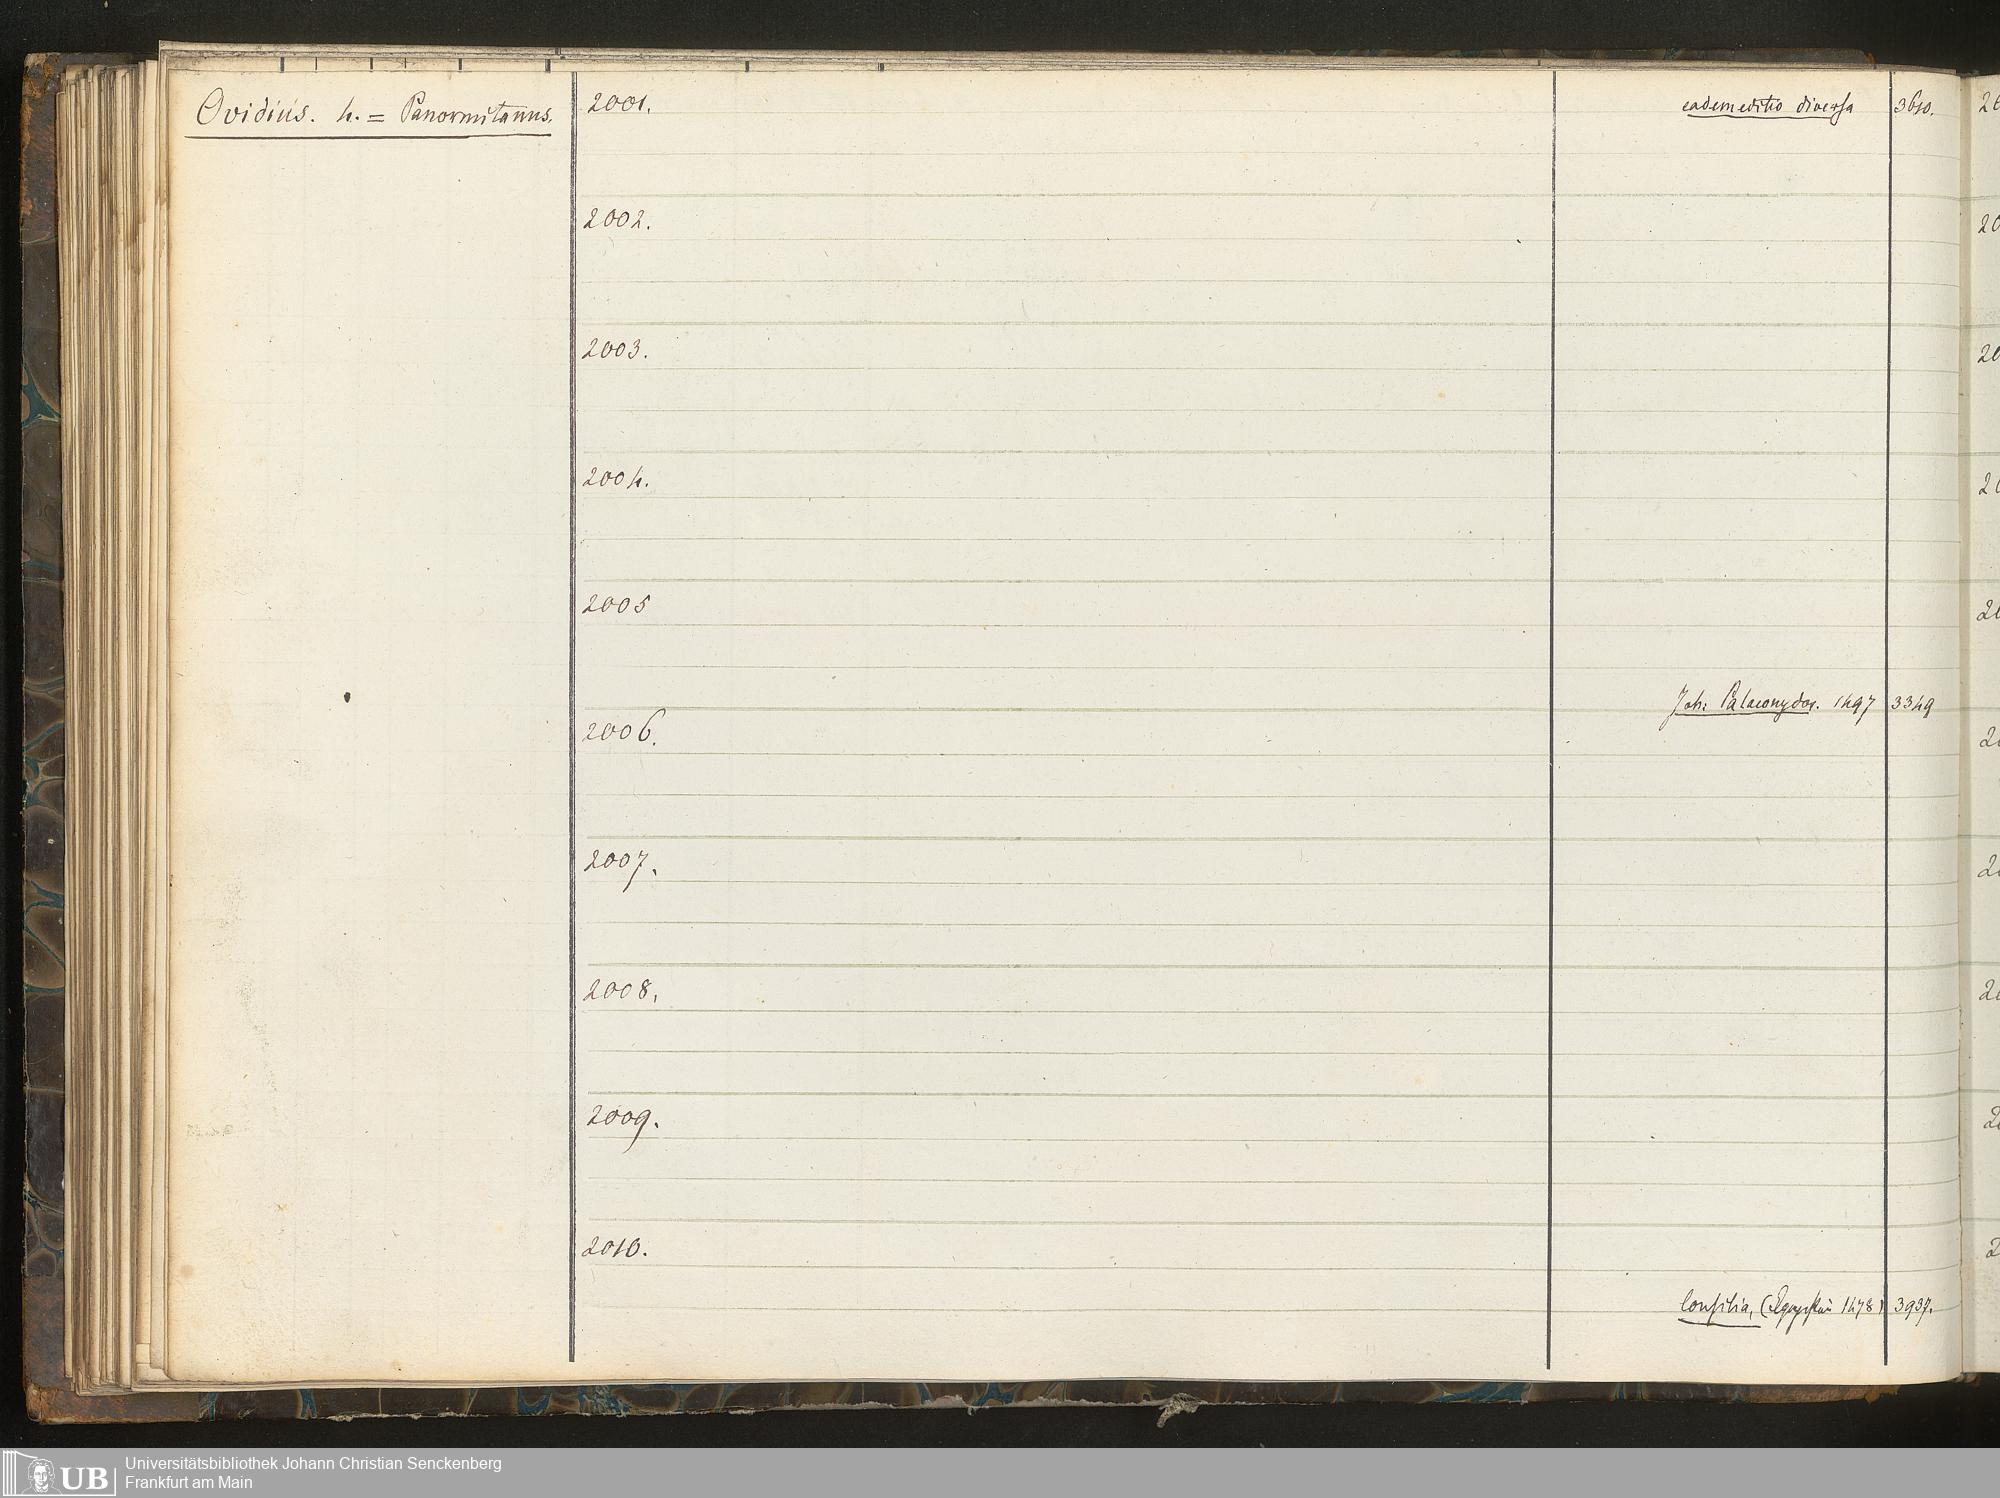 Ovidius. 4. = Panormitanus.
2001.
eadem editio diversa 3610.
2002.
2003.
2004.
2005
Joh: Palaeonydor. 1497 3349
2006.
2007.
2008.
2009.
2010.
Consilia, 1478) 3937.
Universitätsbibliothek Johann Christian Senckenberg
Frankfurt am Main
UB